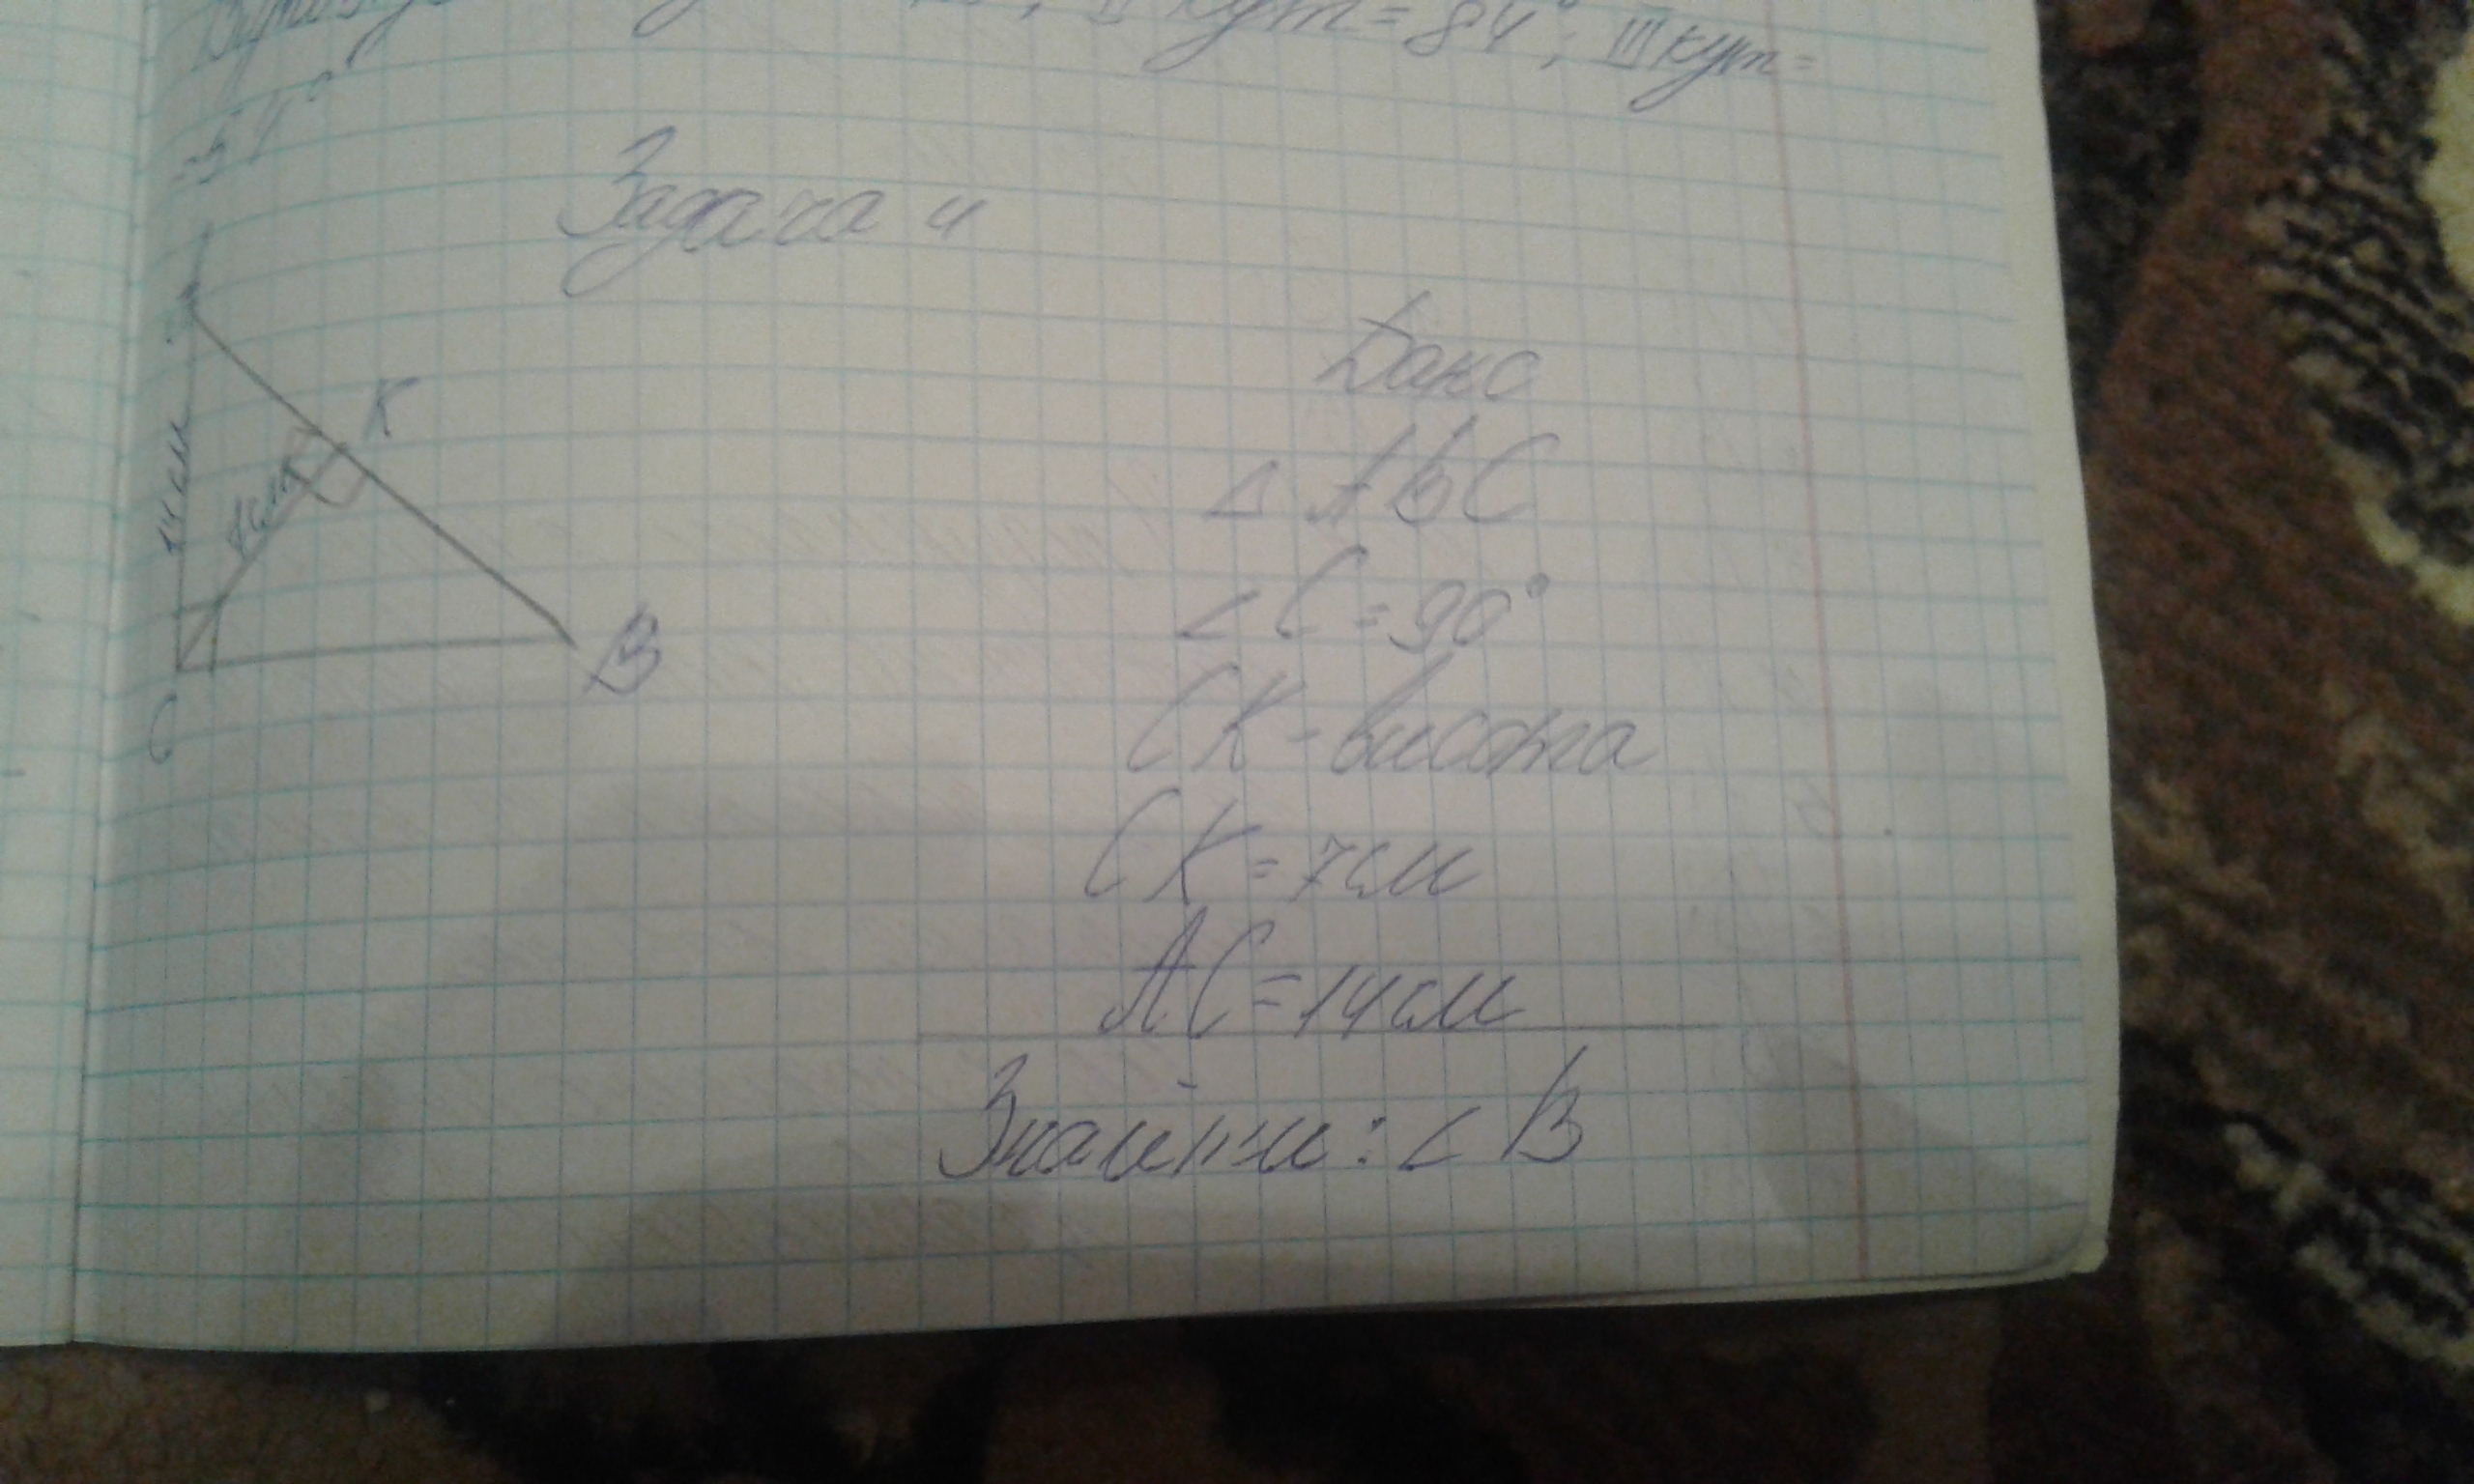 II кут = 84°; III кут =
= 54°
Задача 4
K
14 см
7 см
B
C
Дано
∆ ABC
∠ C = 90°
CK - висота
CK = 7 см
AC = 14 см
Знайти: ∠ B